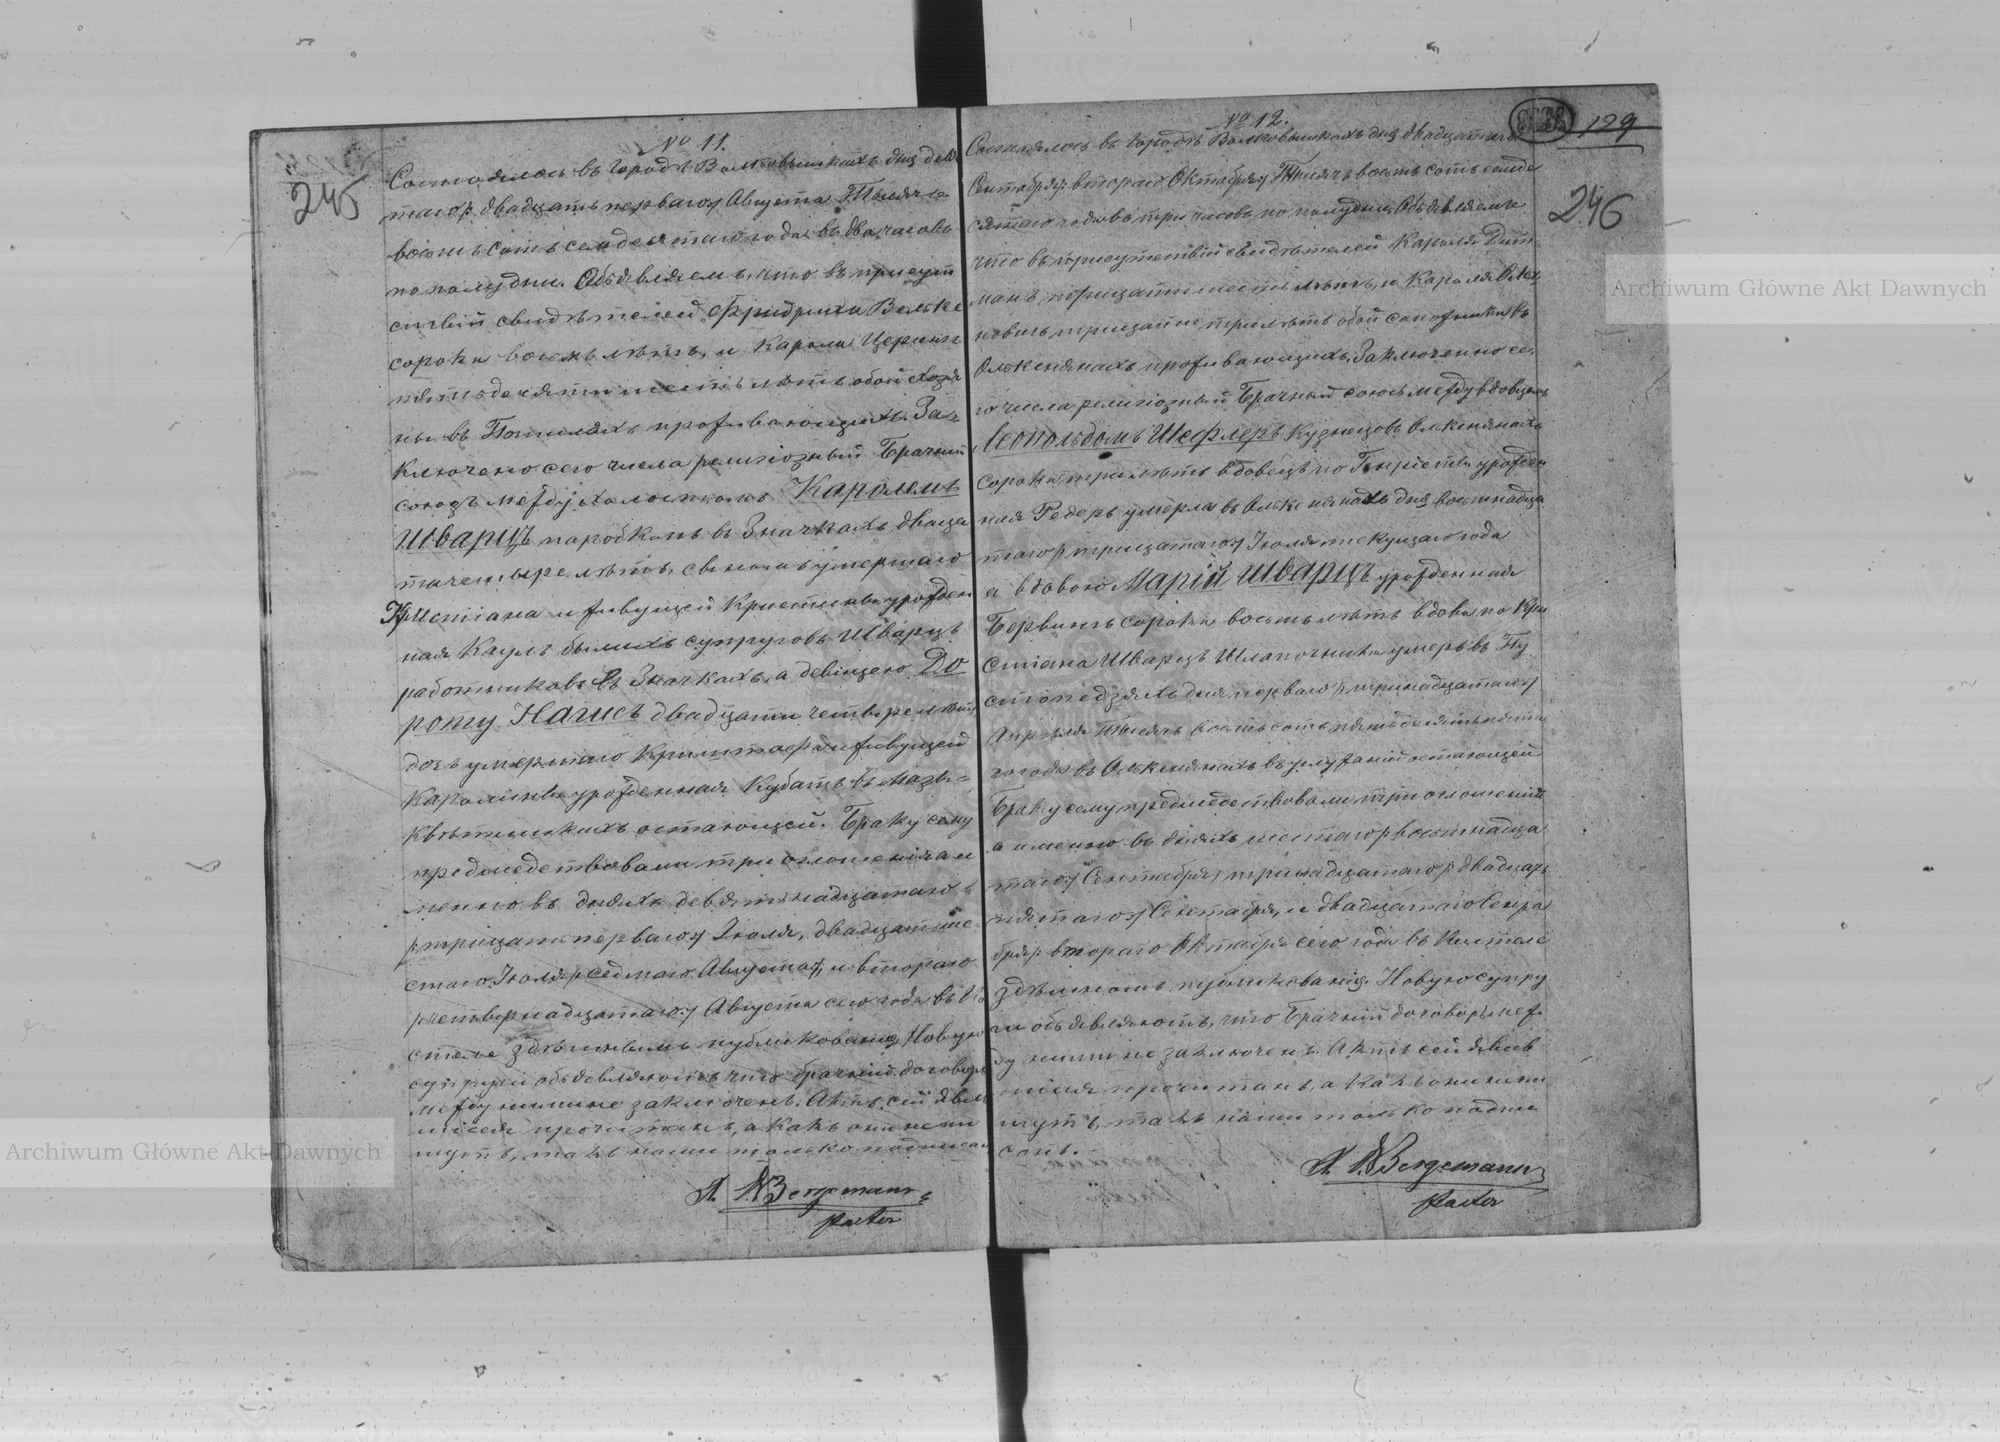 245
№ 11.
Состоялось въ городѣ Волковышкахъ дня девя
таго /: двадцать перваго :/ Августа Тысяча
восемь сотъ семдесятаго года въ два часовъ
по полудни. Объявляемъ, что въ присут
ствіи свидѣтелей Фридриха Вельке
сорока восемь лѣтъ, и Кароля
пятьдесяти шесть лѣтъ обой хозя
ны въ проживающихъ. За
ключено сего числа религіозный Брачный
союзъ между холостымъ Каролемъ
Шварцъ паробкомъ въ Значкахъ двадца
тичетыре лѣтъ, сыномъ умершаго
Христіана и живущей Кристины урожден
ная Каулъ бывшихъ супруговъ Шварцъ
работниковъ въ Значкахъ, а девицею До
роту Нагисъ двадцати четыре лѣтъ,
дочь умершаго Криштофа и живущей
Каролины урожденная Кубатъ въ
остающей. Браку сему
предшедствовали три оглошенія а и
менно въ дняхъ девятнадцатаго
/: тридцать перваго :/ Іюля, двадцать ше
стаго Іюля /: седмаго Августа :/, и втораго
/: четвернадцатаго :/ Августа сего года въ Ко
стеле здѣшнымъ публикованія Новую
супруги объявляютъ что брачный договоръ
между ними не заключенъ. Актъ сей явив
шимся прочитанъ, а какъ они не пи
шутъ, такъ нами только подписан
A. W Bergemann
Pastor
129
246
№ 12.
Состоялось въ городѣ Волковышкахъ дня двадцатаго
Сентября /: втораго Октября :/ Тысяча восемь сотъ семде
сятаго года въ три часовъ по полудни, Объявляемъ
что въ присутствій свидѣтелей Кароля Дит
манъ, тридцати шесть лѣтъ, и Кароля
новичъ тридцати три лѣтъ обой сапожники въ
Олксиянахъ проживающихъ, Заключенно се
го числа религіозный Брачный союзъ между вдовцемъ
Леопольдомъ Шефлеръ Кузнецовъ Олксиянахъ
сорока три лѣтъ вдовецъ по Генріеты урожден
ная Редеръ умерла въ Олксиянахъ дня восемнадца
таго /: тридцатаго :/ Іюля текущаго года
а вдовою Марій Шварцъ урожденная
Бервингъ сорока восемь лѣтъ вдова по Кри
стіана Шварцъ Шлапочника умеръ въ Пу
стопедзяхъ дня перваго /: тринадцатаго :/
Апрѣля Тысяча восемь сотъ пятьдесятъ пята
го года въ Олксиянахъ въ остающей
Браку сему предшедствовали три оглошеній
а именно въ дняхъ шестаго /: восемнадца
таго :/ Сентября, тринадцатаго /: двадцать
пятаго :/ Сентября, и двадцатаго Сентя
бря /: втораго Октября сего года въ Костеле
здѣшномъ публикованія. Новую супру
ги объявляютъ, что Брачный договоръ меж
ду ними не заключенъ. Актъ сей явив
шися прочитанъ, а какъ они не пи
шутъ, такъ нами только подпи
санъ.
A. W Bergemann
Pastor
Archiwum Główne Akt Dawnych
Archiwum Główne Akt Dawnych